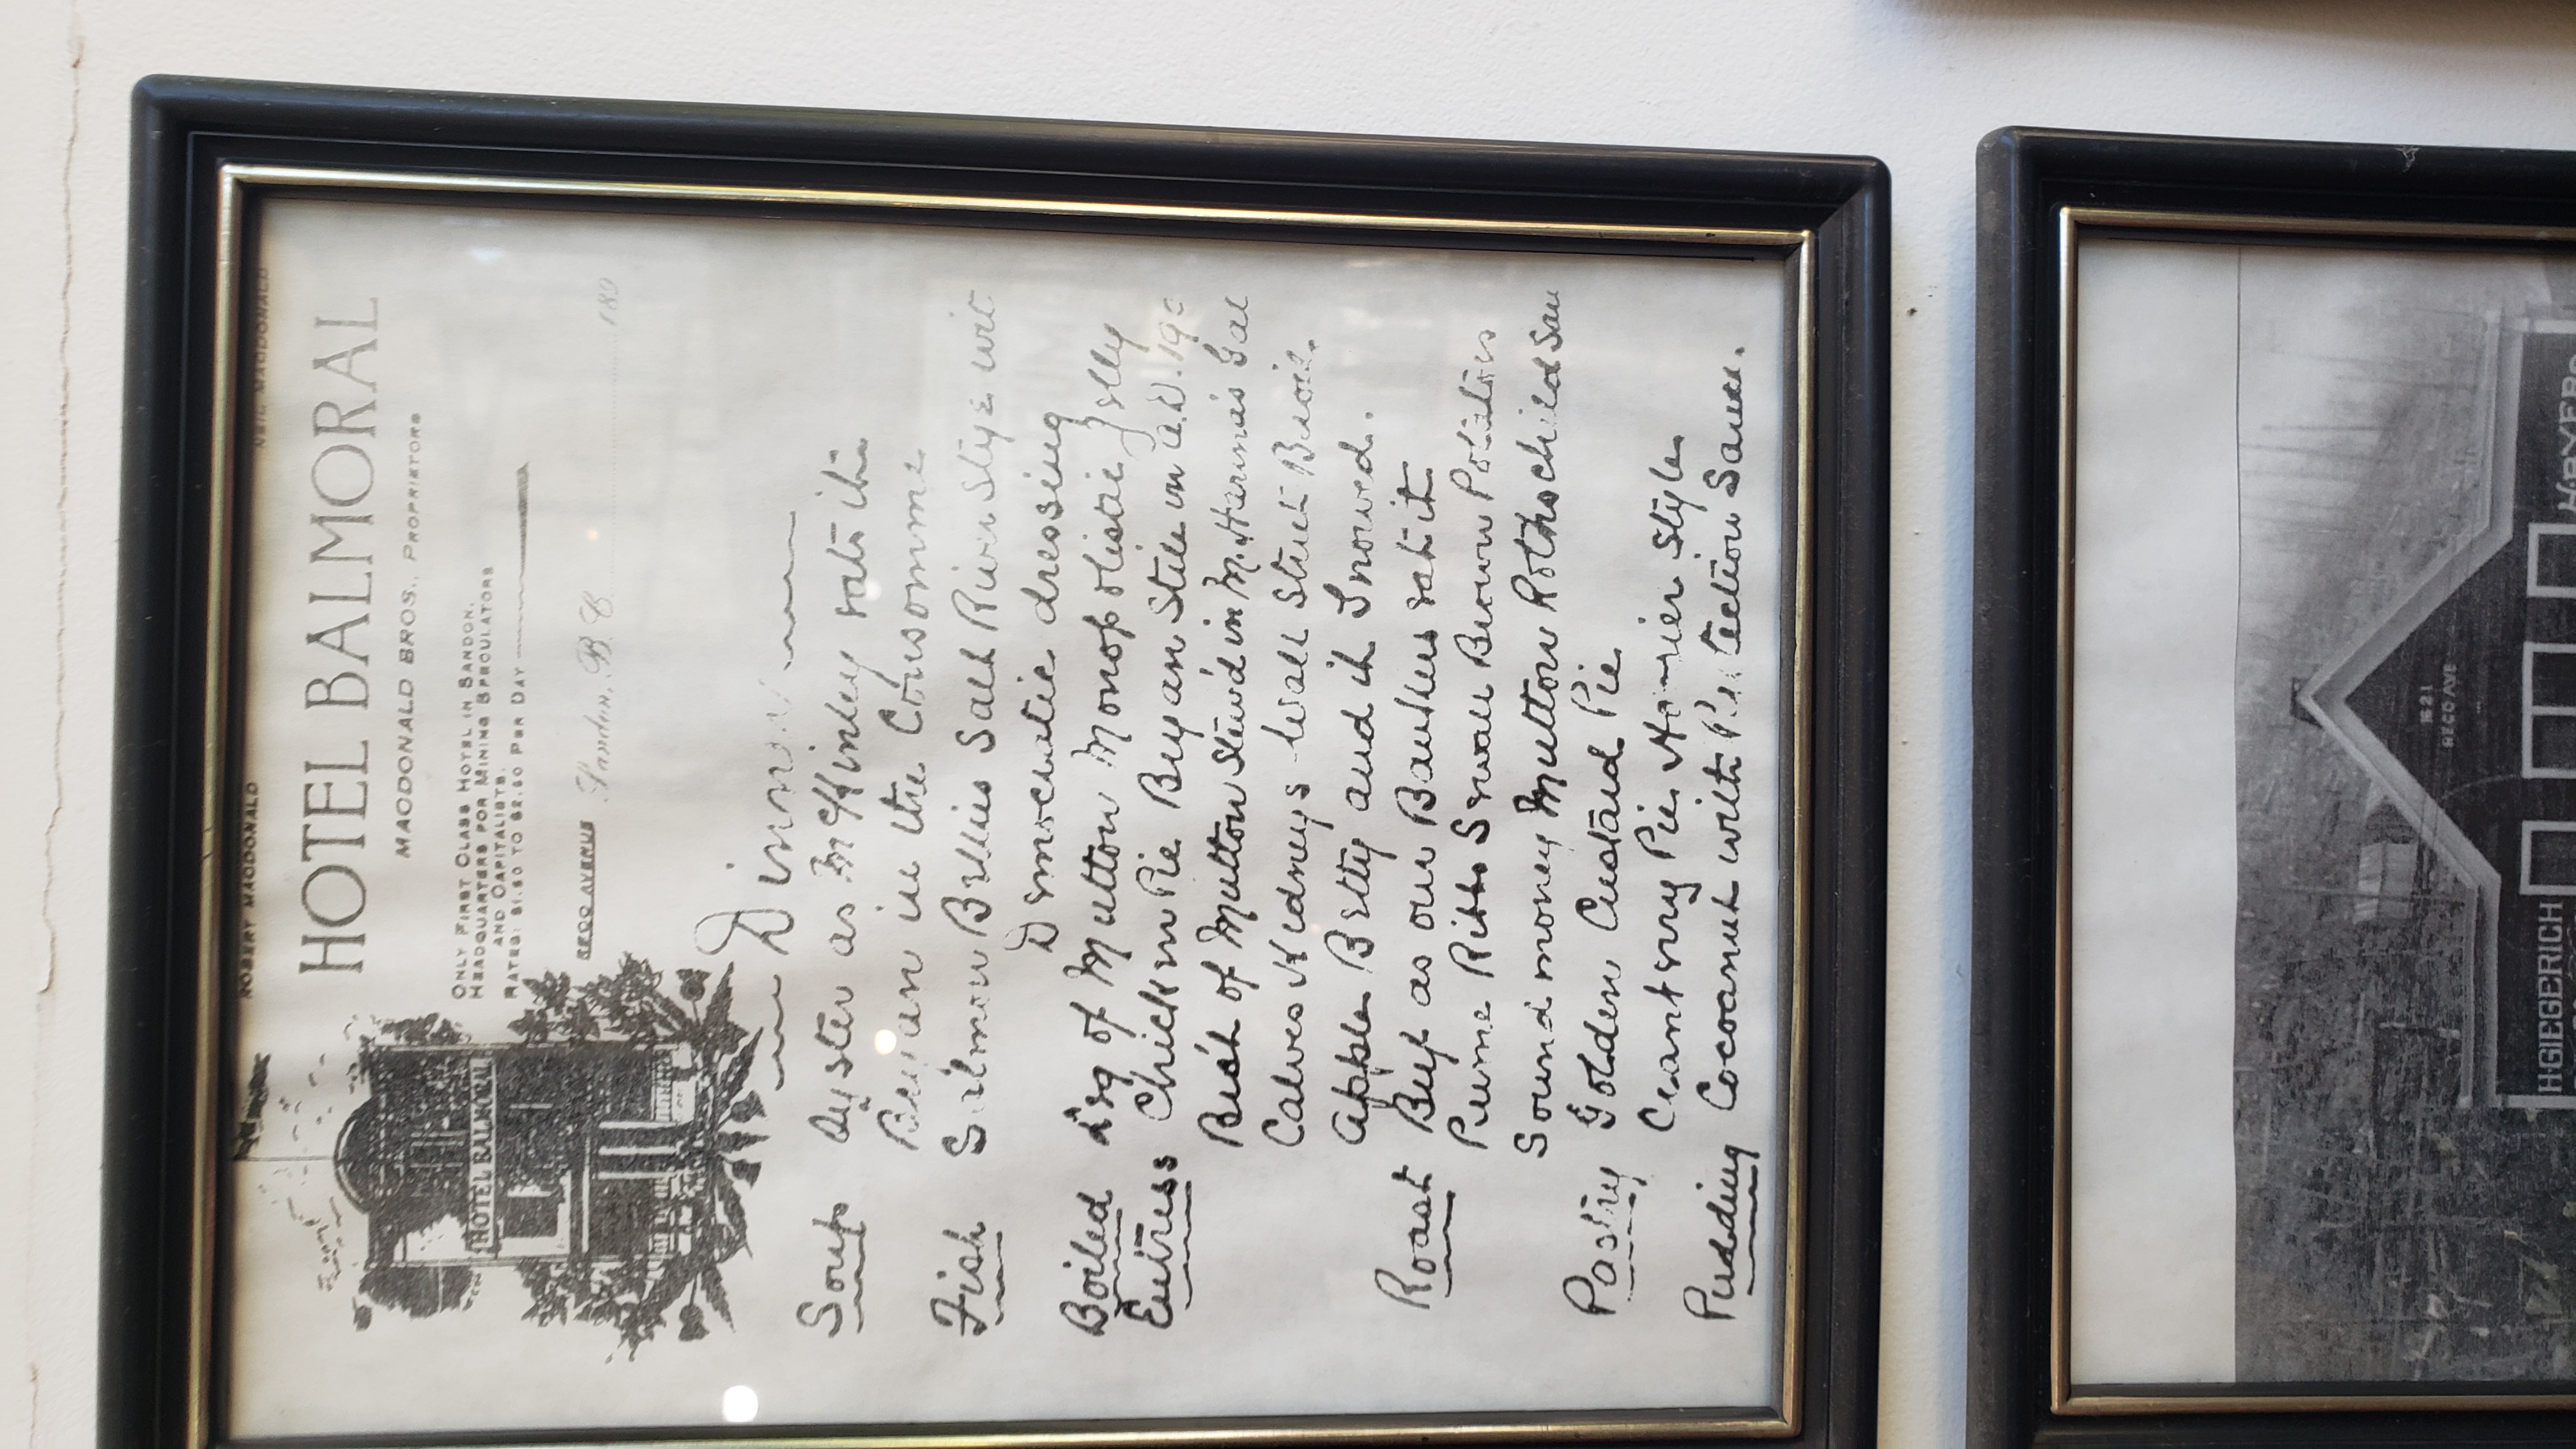 ROBERT MACDONALD NEIL MACDONALD
HOTEL BALMORAL
MACDONALD BROS., PROPRIETORS
ONLY FIRST CLASS HOTEL IN SANDON.
HEADQUARTERS FOR MINING SPECULATORS
AND CAPITALISTS.
RATES: $1.50 TO $2.50 PER DAY
RECO AVENUE Sandon, B.C. 189
HOTEL BALMORAL
Dinner
Soup Oyster as McKinley eats it
Bryan in the Consomme
Fish Salmon Bellies Salt River Style wit
Democratic dressing
Boiled Leg of Mutton Monopolistic Jelly
Entrees Chicken Pie Bryan Stile in A.D. 190
Best of Mutton Stew'd in M. Hanna's Gal
Calves Kidneys Wall Street Broil.
Apple Betty and it Snowed.
Roast Beef as our Bankers eat it
Prime Ribs Sewall Brown Potatoes
Sound money Mutton Rothschild Sau
Pastry Golden Custard Pie
Cranberry Pie Style
Pudding Cocoanut with Protection Sauce.
1621
RECO AVE
H.GIEGERICH